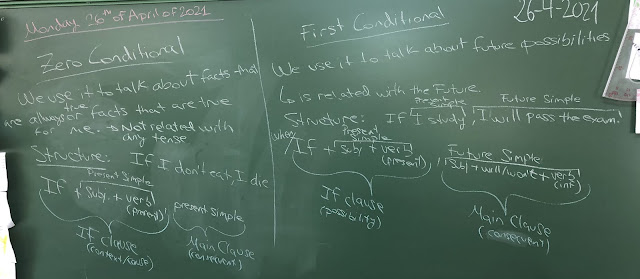 Monday 26th of April of 2021
Zero Conditional
We use it to talk about facts that
are always true or facts that are true
for me. Not related with
any tense
Structure: If I don't eat, I die
Present Simple
If + Subj. + verb
(present)
present simple
If clause
(context/cause)
Main Clause
(consequent)
26-4-2021
First Conditional
We use it to talk about future possibilities
↳ is related with the Future
Present Simple
Future Simple
Structure: If I study, I will pass the exam
when/
Present Simple
If + Subj + verb
(present)
Future Simple
, Subj + will/won't + verb
(inf)
If clause
(possibility)
Main Clause
(consequent)